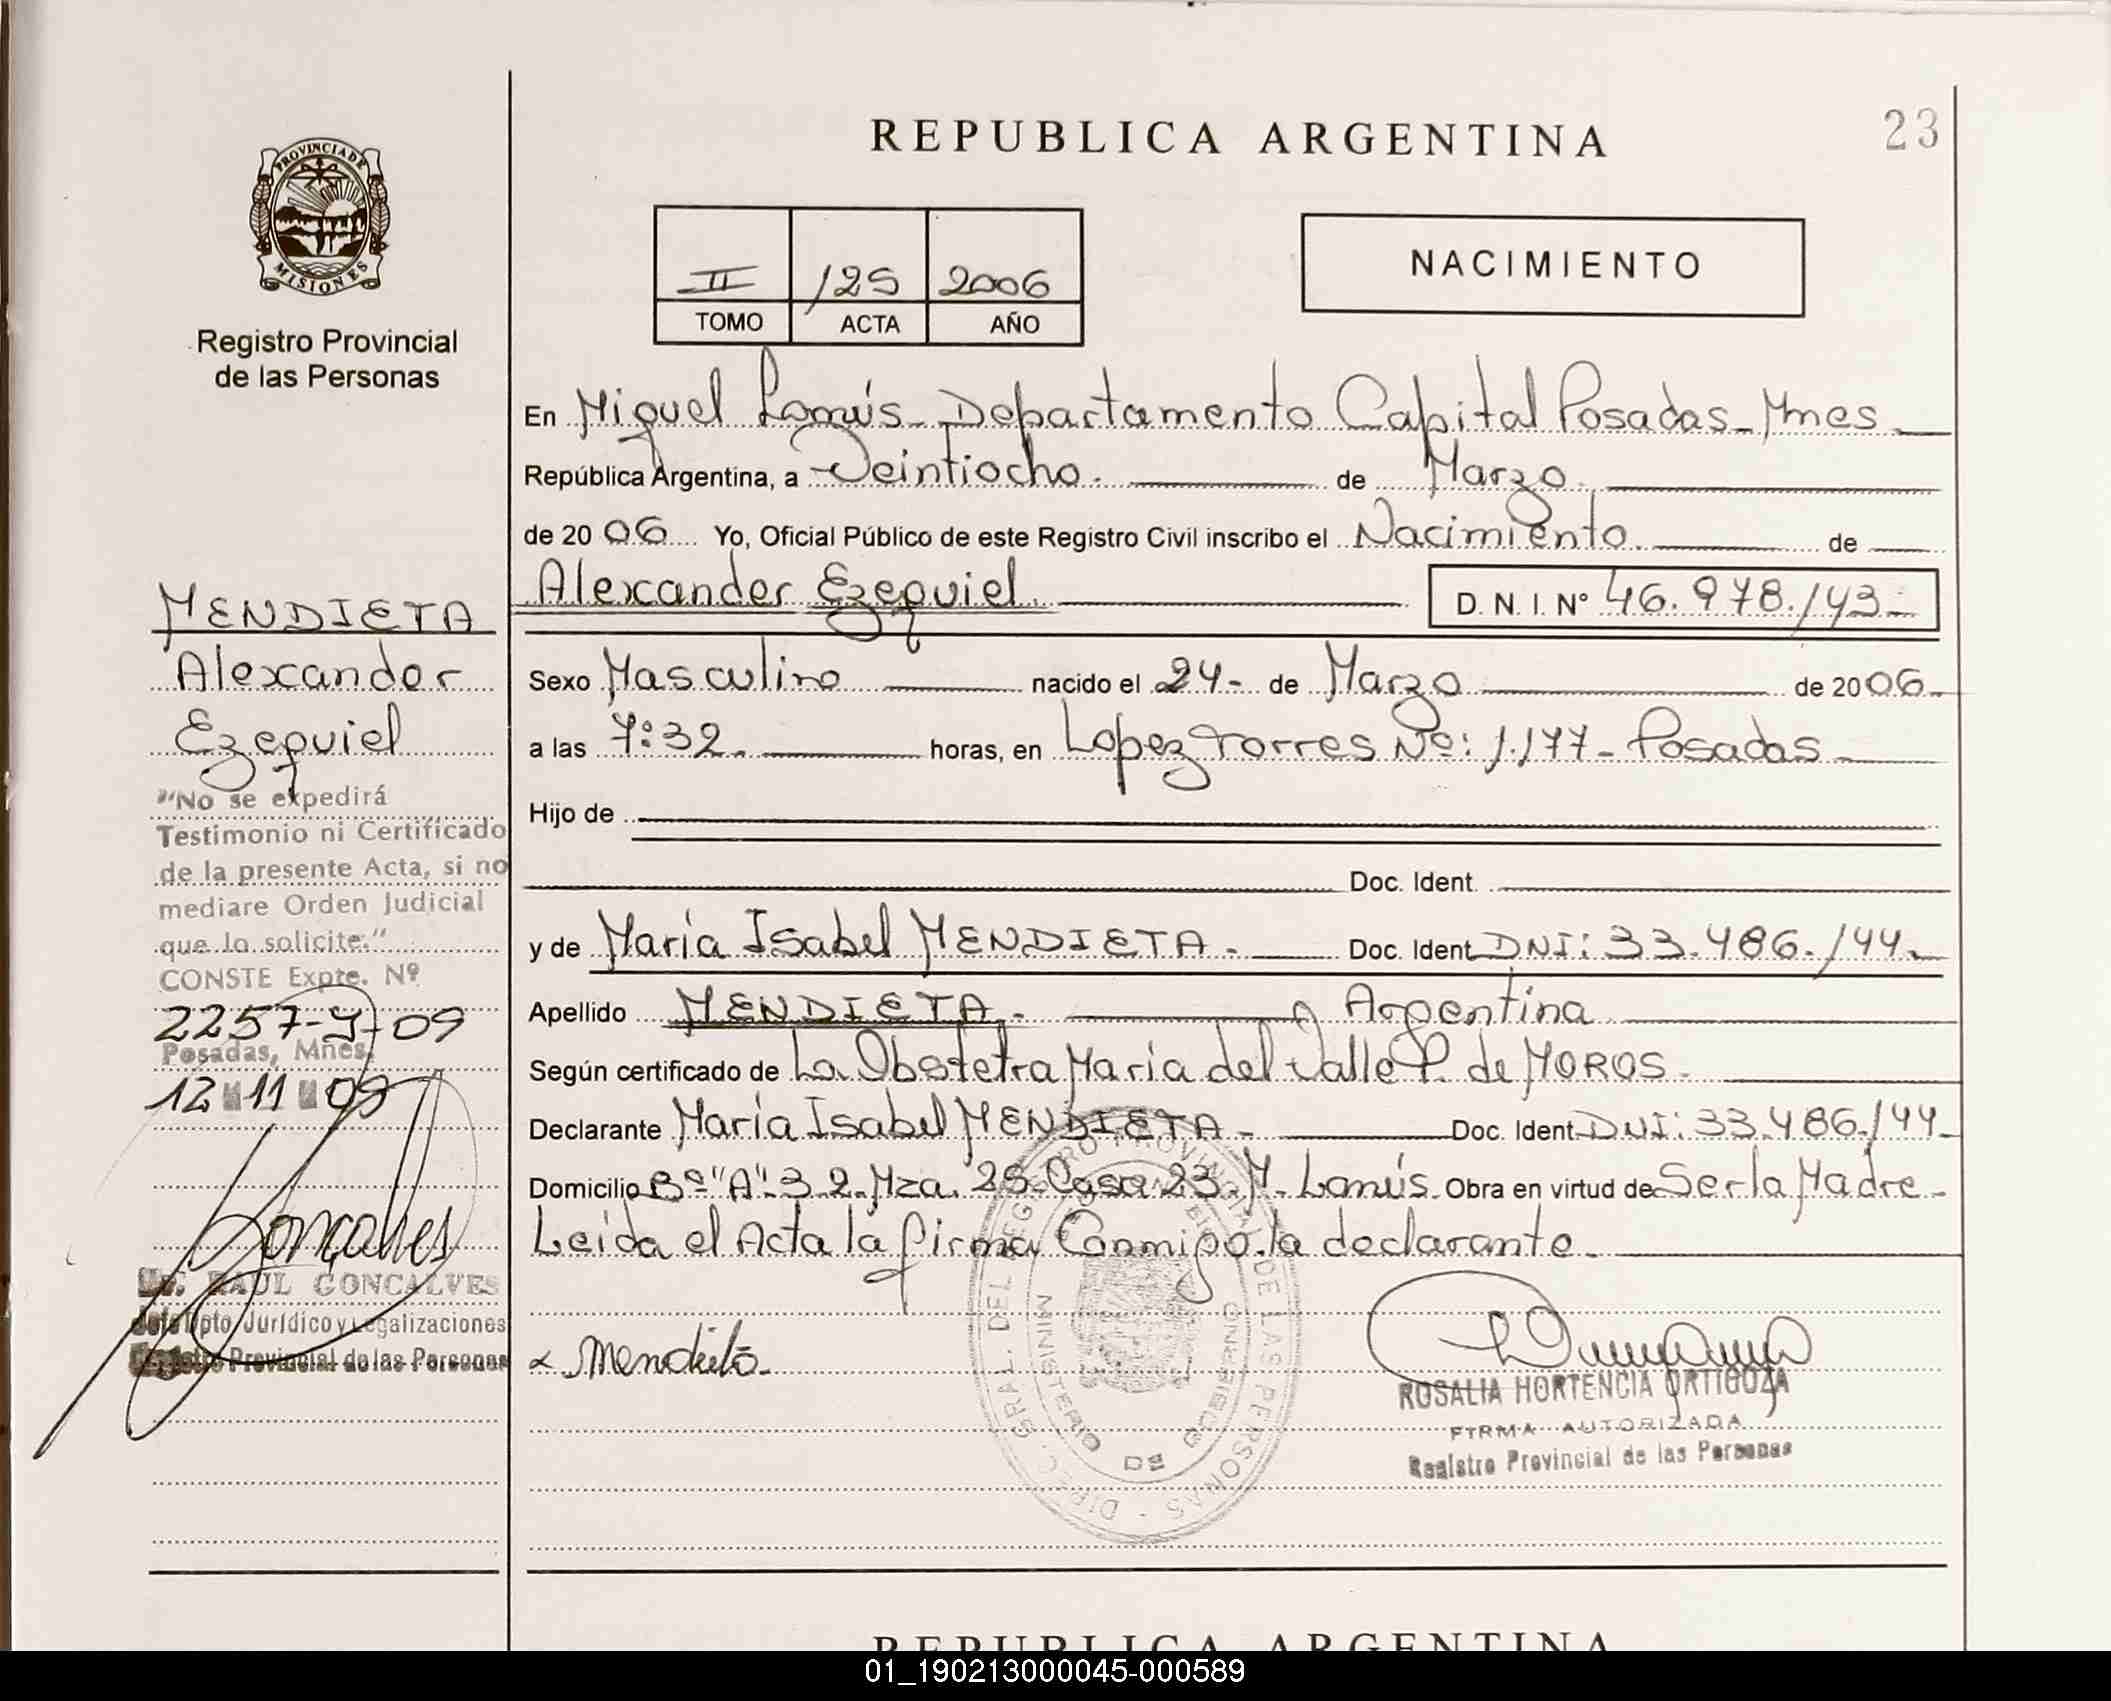 REPUBLICA ARGENTINA
23
PROVINCIA DE
MISIONES
Registro Provincial
de las Personas
II 125 2006
TOMO ACTA AÑO
NACIMIENTO
En Miguel Lanús - Departamento Capital Posadas - Mnes
República Argentina, a Veintiocho. de Marzo.
de 20 06 Yo, Oficial Público de este Registro Civil inscribo el Nacimiento de
Alexander Ezequiel D. N. I. Nº 46.978.143-
Sexo Masculino nacido el 24- de Marzo de 20 06
a las 7:32. horas, en Lopez Torres Nº: 1.177 - Posadas
Hijo de
Doc. Ident.
y de María Isabel MENDIETA - Doc. Ident DNI: 33.486.144-
Apellido MENDIETA - Argentina
Según certificado de La Obstetra María del Valle P. de MOROS -
Declarante María Isabel MENDIETA - Doc. Ident DNI: 33.486.144-
Domicilio Bº "A" 3 2 Mza. 25 Casa 23 - M. Lanús. Obra en virtud de Ser la Madre -
Leída el Acta la firma Conmigo la declarante
MENDIETA
Alexander
Ezequiel
"No se expedirá
Testimonio ni Certificado
de la presente Acta, si no
mediare Orden Judicial
que lo solicite."
CONSTE Expte. Nº
2257-J-09
Posadas, Mnes.
12 11 09
Goncalves
RAUL GONCALVES
Jefe Dpto Jurídico y Legalizaciones
Registro Provincial de las Personas
DIREC. GRAL. DEL REGISTRO PROVINCIAL DE LAS PERSONAS
MINISTERIO DE GOBIERNO
ROSALIA HORTENCIA ORTIGOZA
FIRMA AUTORIZADA
Registro Provincial de las Personas
REPUBLICA ARGENTINA
01_190213000045-000589